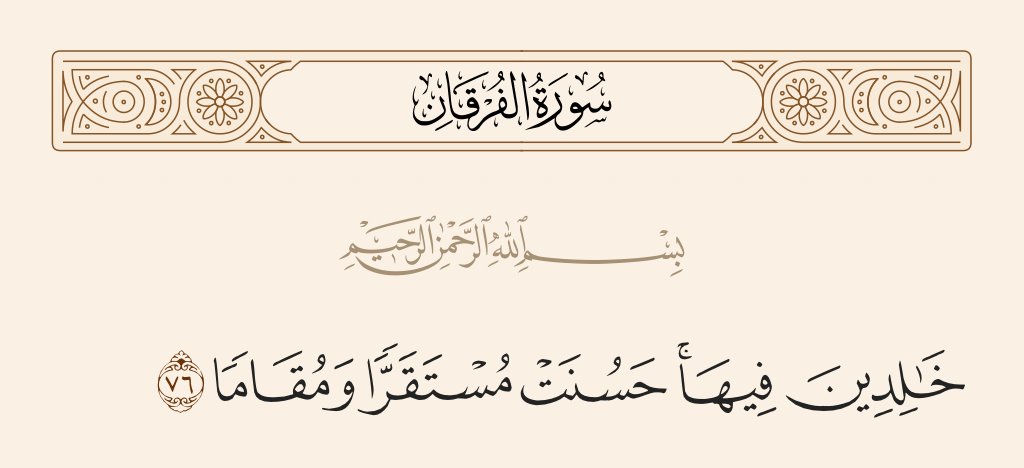 سُورَةُ الْفُرْقَانِ
بِسْمِ ٱللَّهِ ٱلرَّحْمَٰنِ ٱلرَّحِيمِ
خَٰلِدِينَ فِيهَاۚ حَسُنَتْ مُسْتَقَرًّا وَمُقَامًا ٧٦